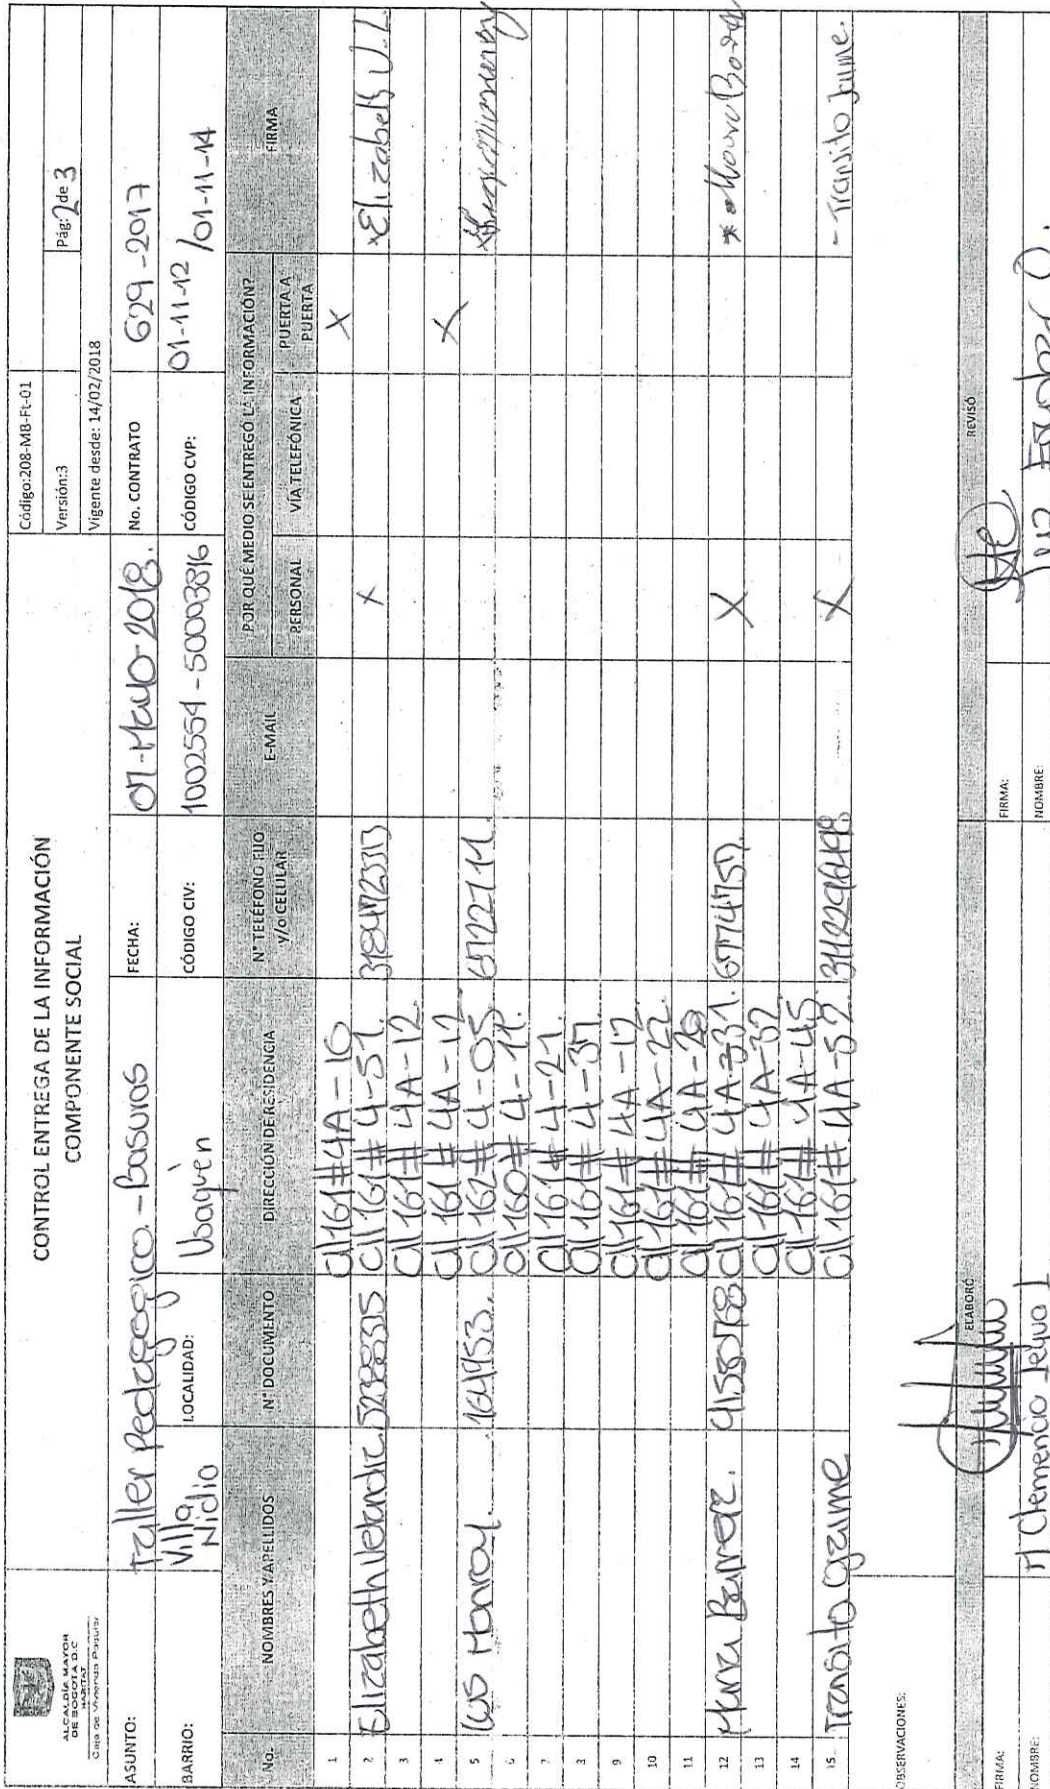 ALCALDÍA MAYOR
DE BOGOTÁ D.C.
HÁBITAT
Caja de Vivienda Popular
CONTROL ENTREGA DE LA INFORMACIÓN
COMPONENTE SOCIAL
Código:208-MB-Ft-01
Versión:3 Pág: 2 de 3
Vigente desde: 14/02/2018
ASUNTO: Taller Pedagogico - Basuras FECHA: 07-Mayo-2018. No. CONTRATO 629-2017
BARRIO: Villa Nidia LOCALIDAD: Usaquén CÓDIGO CIV: 1002554-50003816 CÓDIGO CVP: 01-11-12 /01-11-14
No. NOMBRES Y APELLIDOS N° DOCUMENTO DIRECCIÓN DE RESIDENCIA N° TELÉFONO FIJO y/o CELULAR E-MAIL POR QUÉ MEDIO SE ENTREGÓ LA INFORMACIÓN? FIRMA
PERSONAL VÍA TELEFÓNICA PUERTA A PUERTA
1 Cl 161 # 4A-10 X
2 Elizabeth 52388315 Cl 161 # 4-51. 3184723313 X Elizabeth V.L
3 Cl 161 # 4A-12.
4 Cl 161 # 4A-12 X
5 Luis Monroy. 164953. Cl 162 # 4-05. 6722711.
6 Cl 160 # 4-11.
7 Cl 161 # 4-21.
8 Cl 161 # 4-37
9 Cl 161 # 4A-12
10 Cl 161 # 4A-22.
11 Cl 161 # 4A-20
12 Maria 41580768 Cl 161 # 4A-31. 6774757. X
13 Cl 161 # 4A-32
14 Cl 161 # 4A-45.
15 Transito Jaime Cl 161 # 4A-52. 3112296498 X - Transito Jaime.
OBSERVACIONES:
ELABORÓ REVISÓ
FIRMA: FIRMA:
NOMBRE: M Clemencia NOMBRE: O.